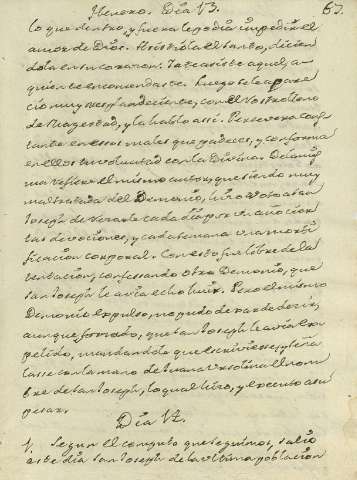 Henero. Dia 13. 63.
lo que dentro, y fuera le podia impedir el
amor de Dios. Asistióla el Santo, dicien
dola en su corazon. Ya te asiste aquel, a
quien te encomendaste. Luego se le apare
ció muy resplandeciente, con el Rostro lleno
de Magestad, y la habló assi. Persevera cons
tante en essos males que padeces, y conforma
en ellos tu voluntad con la Divina. De la mis
ma refiere el mismo autor, que siendo muy
maltratada del Demonio, hizo voto a San
Joseph de rezarle cada dia por un año cier
tas devociones, y cada semana una morti
ficacion corporal. Con esto fue libre de la
tentacion, confessando otro Demonio, que
San Joseph le avia echo huir. Pero el mismo
Demonio expulso, no pudo dexar de decir,
aunque forzado, que San Joseph le avia ex
pelido, mandandole que escriviesse, y seña
lasse con la mano de Juana Ursulina el nom
bre de San Joseph, lo qual hizo, y executó a su
pesar.
Dia 14.
1. Segun el computo que seguimos, salió
este dia San Joseph de la ultima poblacion